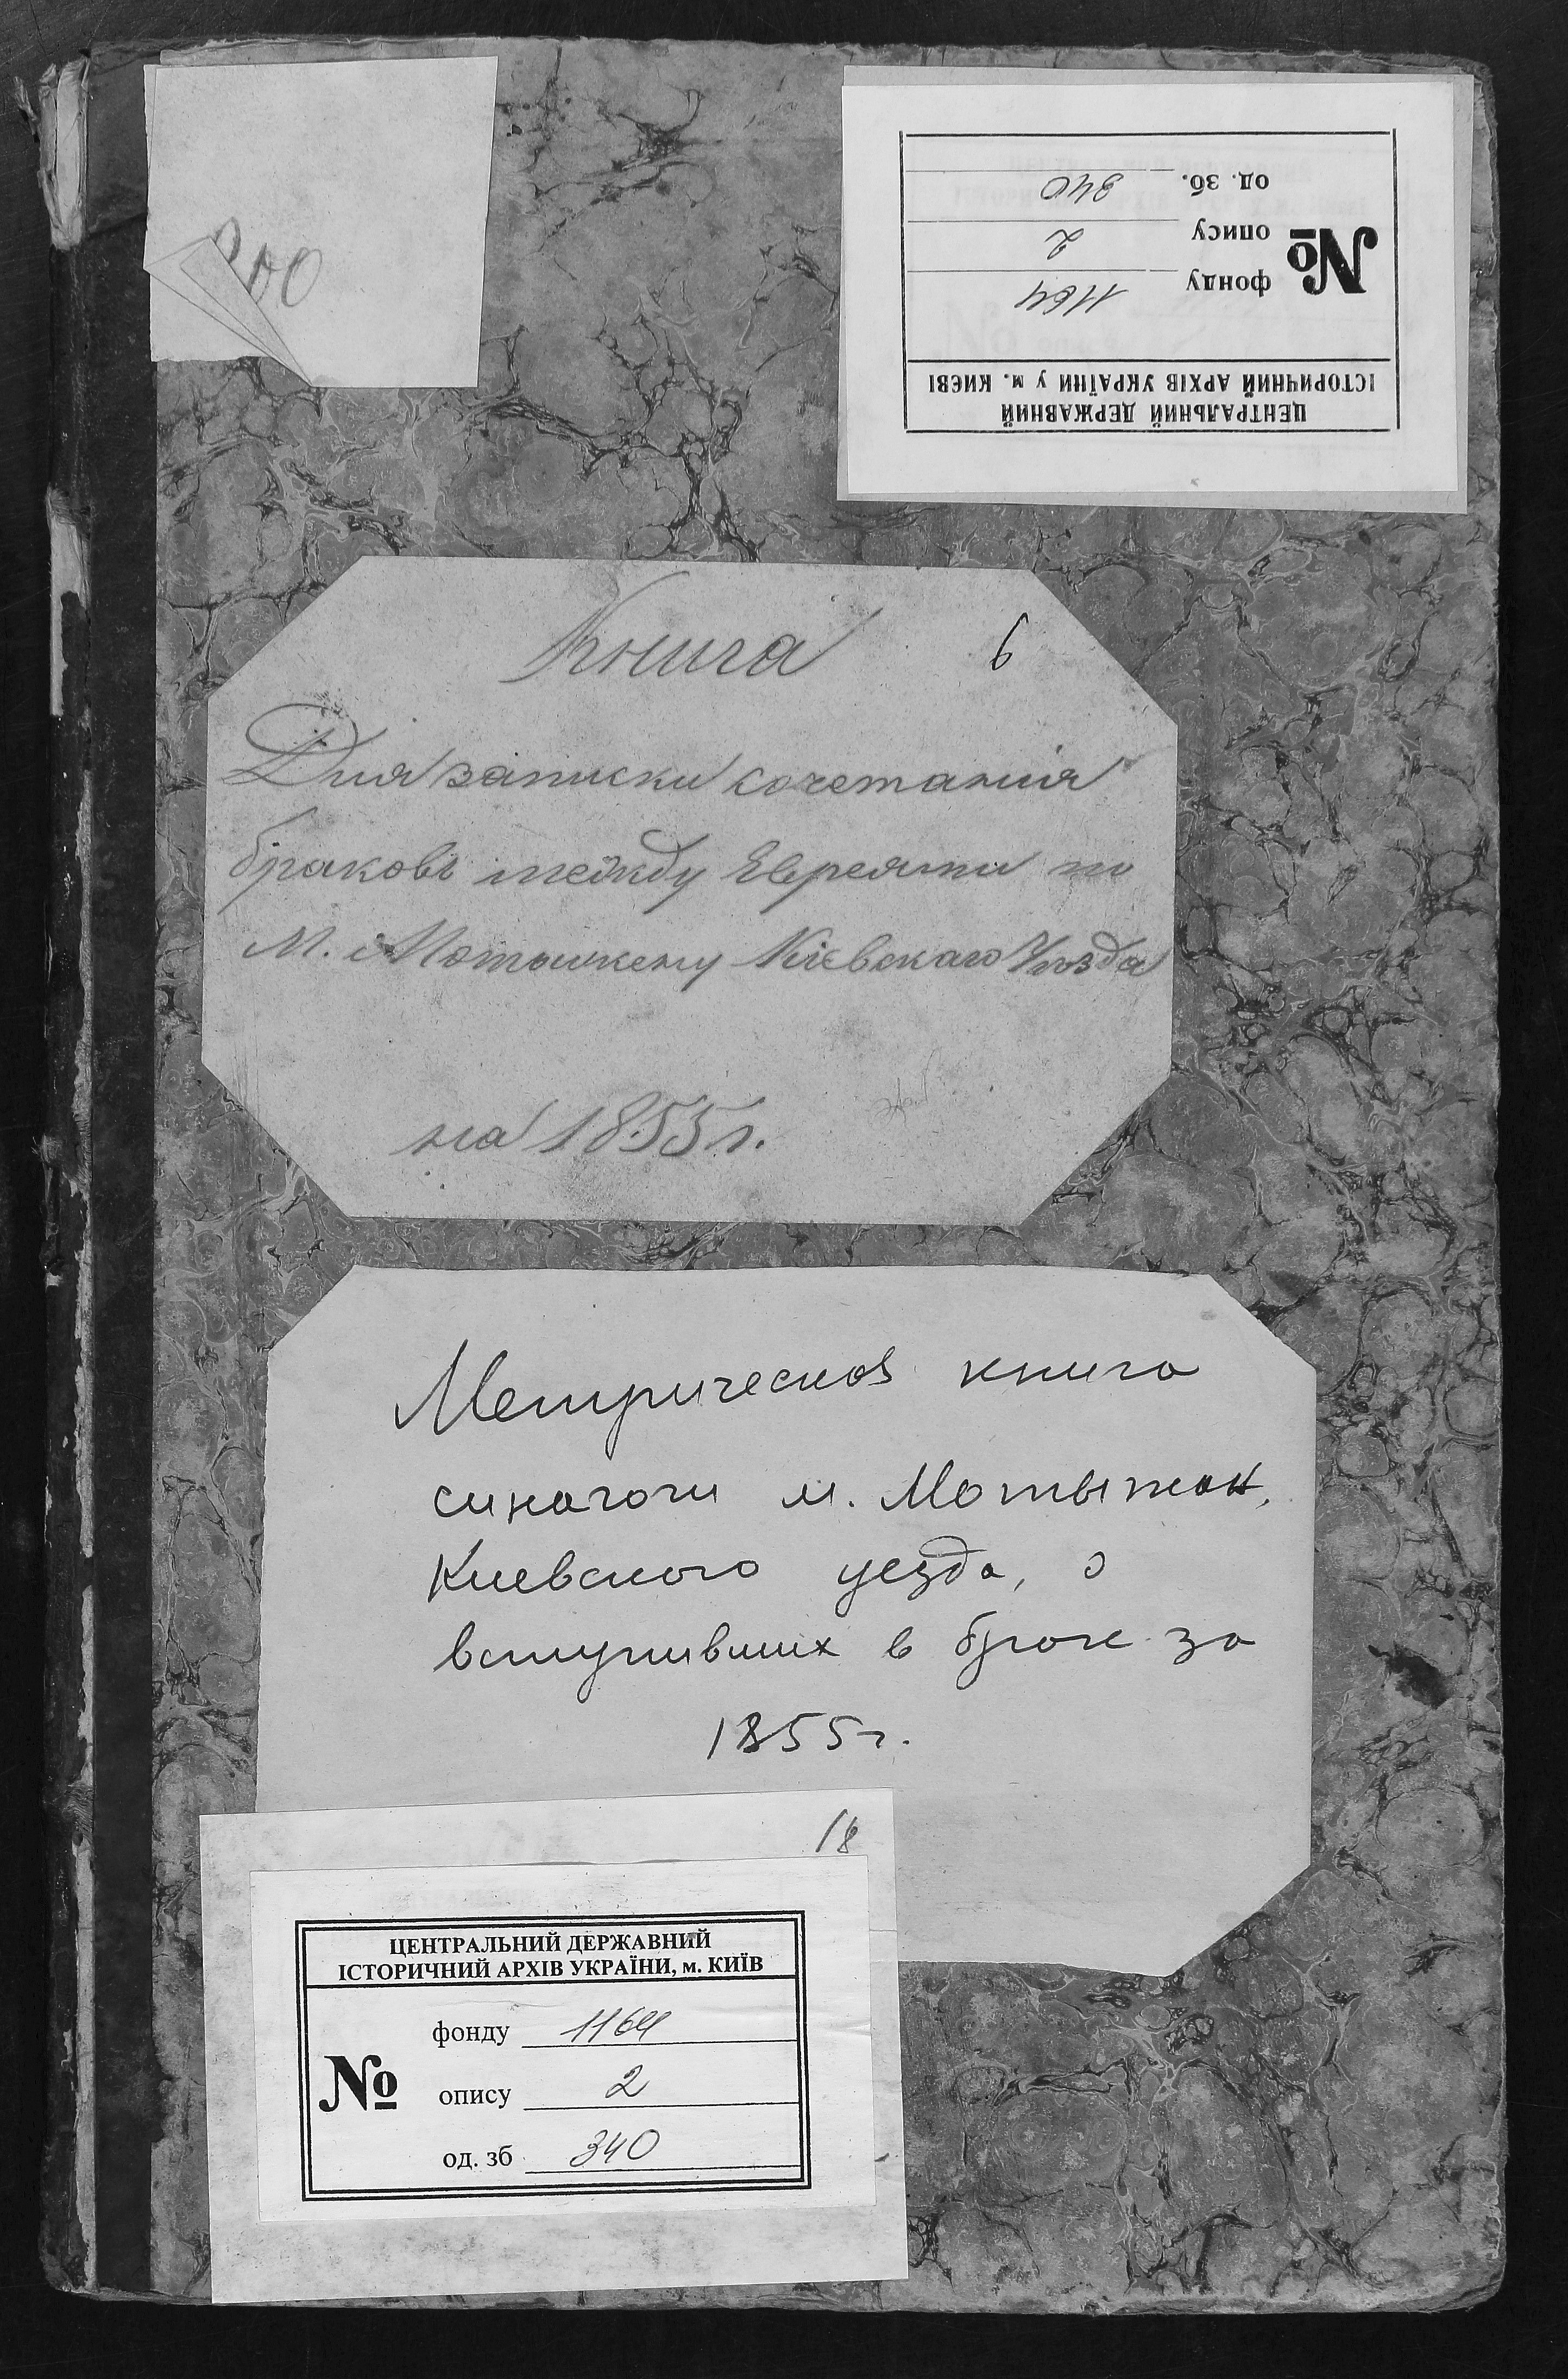 200
ЦЕНТРАЛЬНИЙ ДЕРЖАВНИЙ
ІСТОРИЧНИЙ АРХІВ УКРАЇНИ у м. КИЄВІ
№
фонду 1164
опису 2
од. зб. 340
Книга
6
Для записки сочетанія
браковъ между Евреями по
М. Мотыжену Кіевскаго Уѣзда
на 1855 г.
Метрическая книга
синагоги м. Мотыжан,
Киевского уезда, о
вступивших в брак за
1855 г.
18
ЦЕНТРАЛЬНИЙ ДЕРЖАВНИЙ
ІСТОРИЧНИЙ АРХІВ УКРАЇНИ, м. КИЇВ
№
фонду 1164
опису 2
од. зб 340